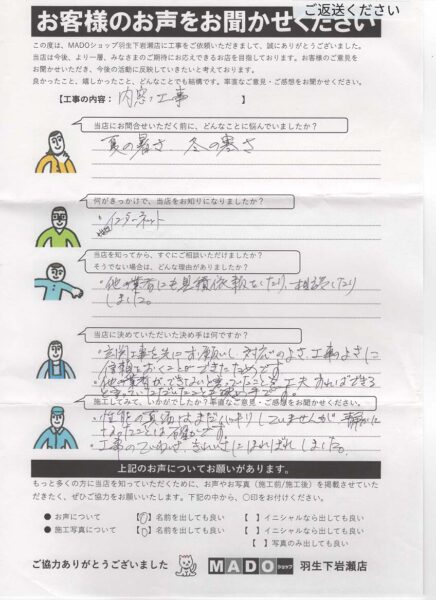 ご返送ください
お客様のお声をお聞かせください
この度は、MADOショップ羽生下岩瀬店に工事をご依頼いただきまして、誠にありがとうございました。
当店は今後、より一層、みなさまのご期待にお応えできるお店を目指しております。お客様のご意見を
お聞かせいただき、今後の活動に反映していきたいと考えております。
良かったこと、嬉しかったこと、どんなことでも結構です。率直なご意見・ご感想をお聞かせください。
【工事の内容: 内窓工事 】
当店にお問合せいただく前に、どんなことに悩んでいましたか？
夏の暑さ、冬の寒さ
何がきっかけで、当店をお知りになりましたか？
・インターネット
当店を知ってから、すぐにご相談いただけましたか？
そうでない場合は、どんな理由がありましたか？
・他の業者にも見積依頼をしたり、相談したり
しました。
当店に決めていただいた決め手は何ですか？
・玄関工事を先にお願いし対応のよさ、工事のよさに
信頼をおくことができたためです。
・他の業者ができないと言っていたことを工夫すればできる
施工してみて、いかがでしたか？率直なご意見・ご感想をお聞かせください。
・性能の真価はまだはっきりしていませんが 静かに
なったことは確かです。
・工事のていねいさ、きれいさにほれぼれしました。
上記のお声についてお願いがあります。
もっと多くの方に当店を知っていただくために、お声やお写真（施工前/施工後）を掲載させていた
だきたく、ぜひご協力をお願いいたします。下記の中から、○印をお付けください。
● お声について 【○】名前を出しても良い 【 】イニシャルなら出しても良い
● 施工写真について 【○】名前を出しても良い 【 】イニシャルなら出しても良い
【 】写真のみ出しても良い
ご協力ありがとうございました MADOショップ 羽生下岩瀬店